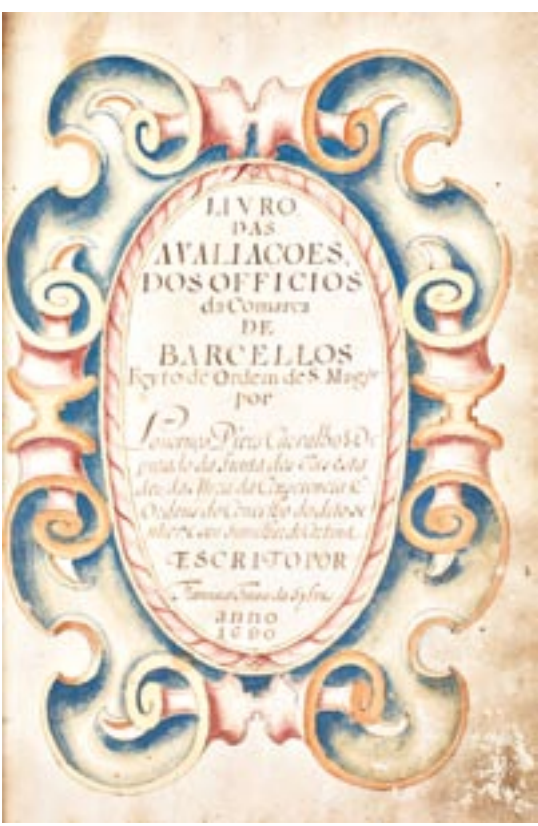 LIVRO
DAS
AVALIACOES,
DOS OFFICIOS
da Comarca
DE
BARCELLOS
Feyto de Ordem de S. Magde
por
Lourenço Pires Carvalho De
putado da Junta dos Tres Esta
dos, da Meza da Consciencia E
Ordens do Concelho do dito Se
nhor
ESCRITO POR
anno